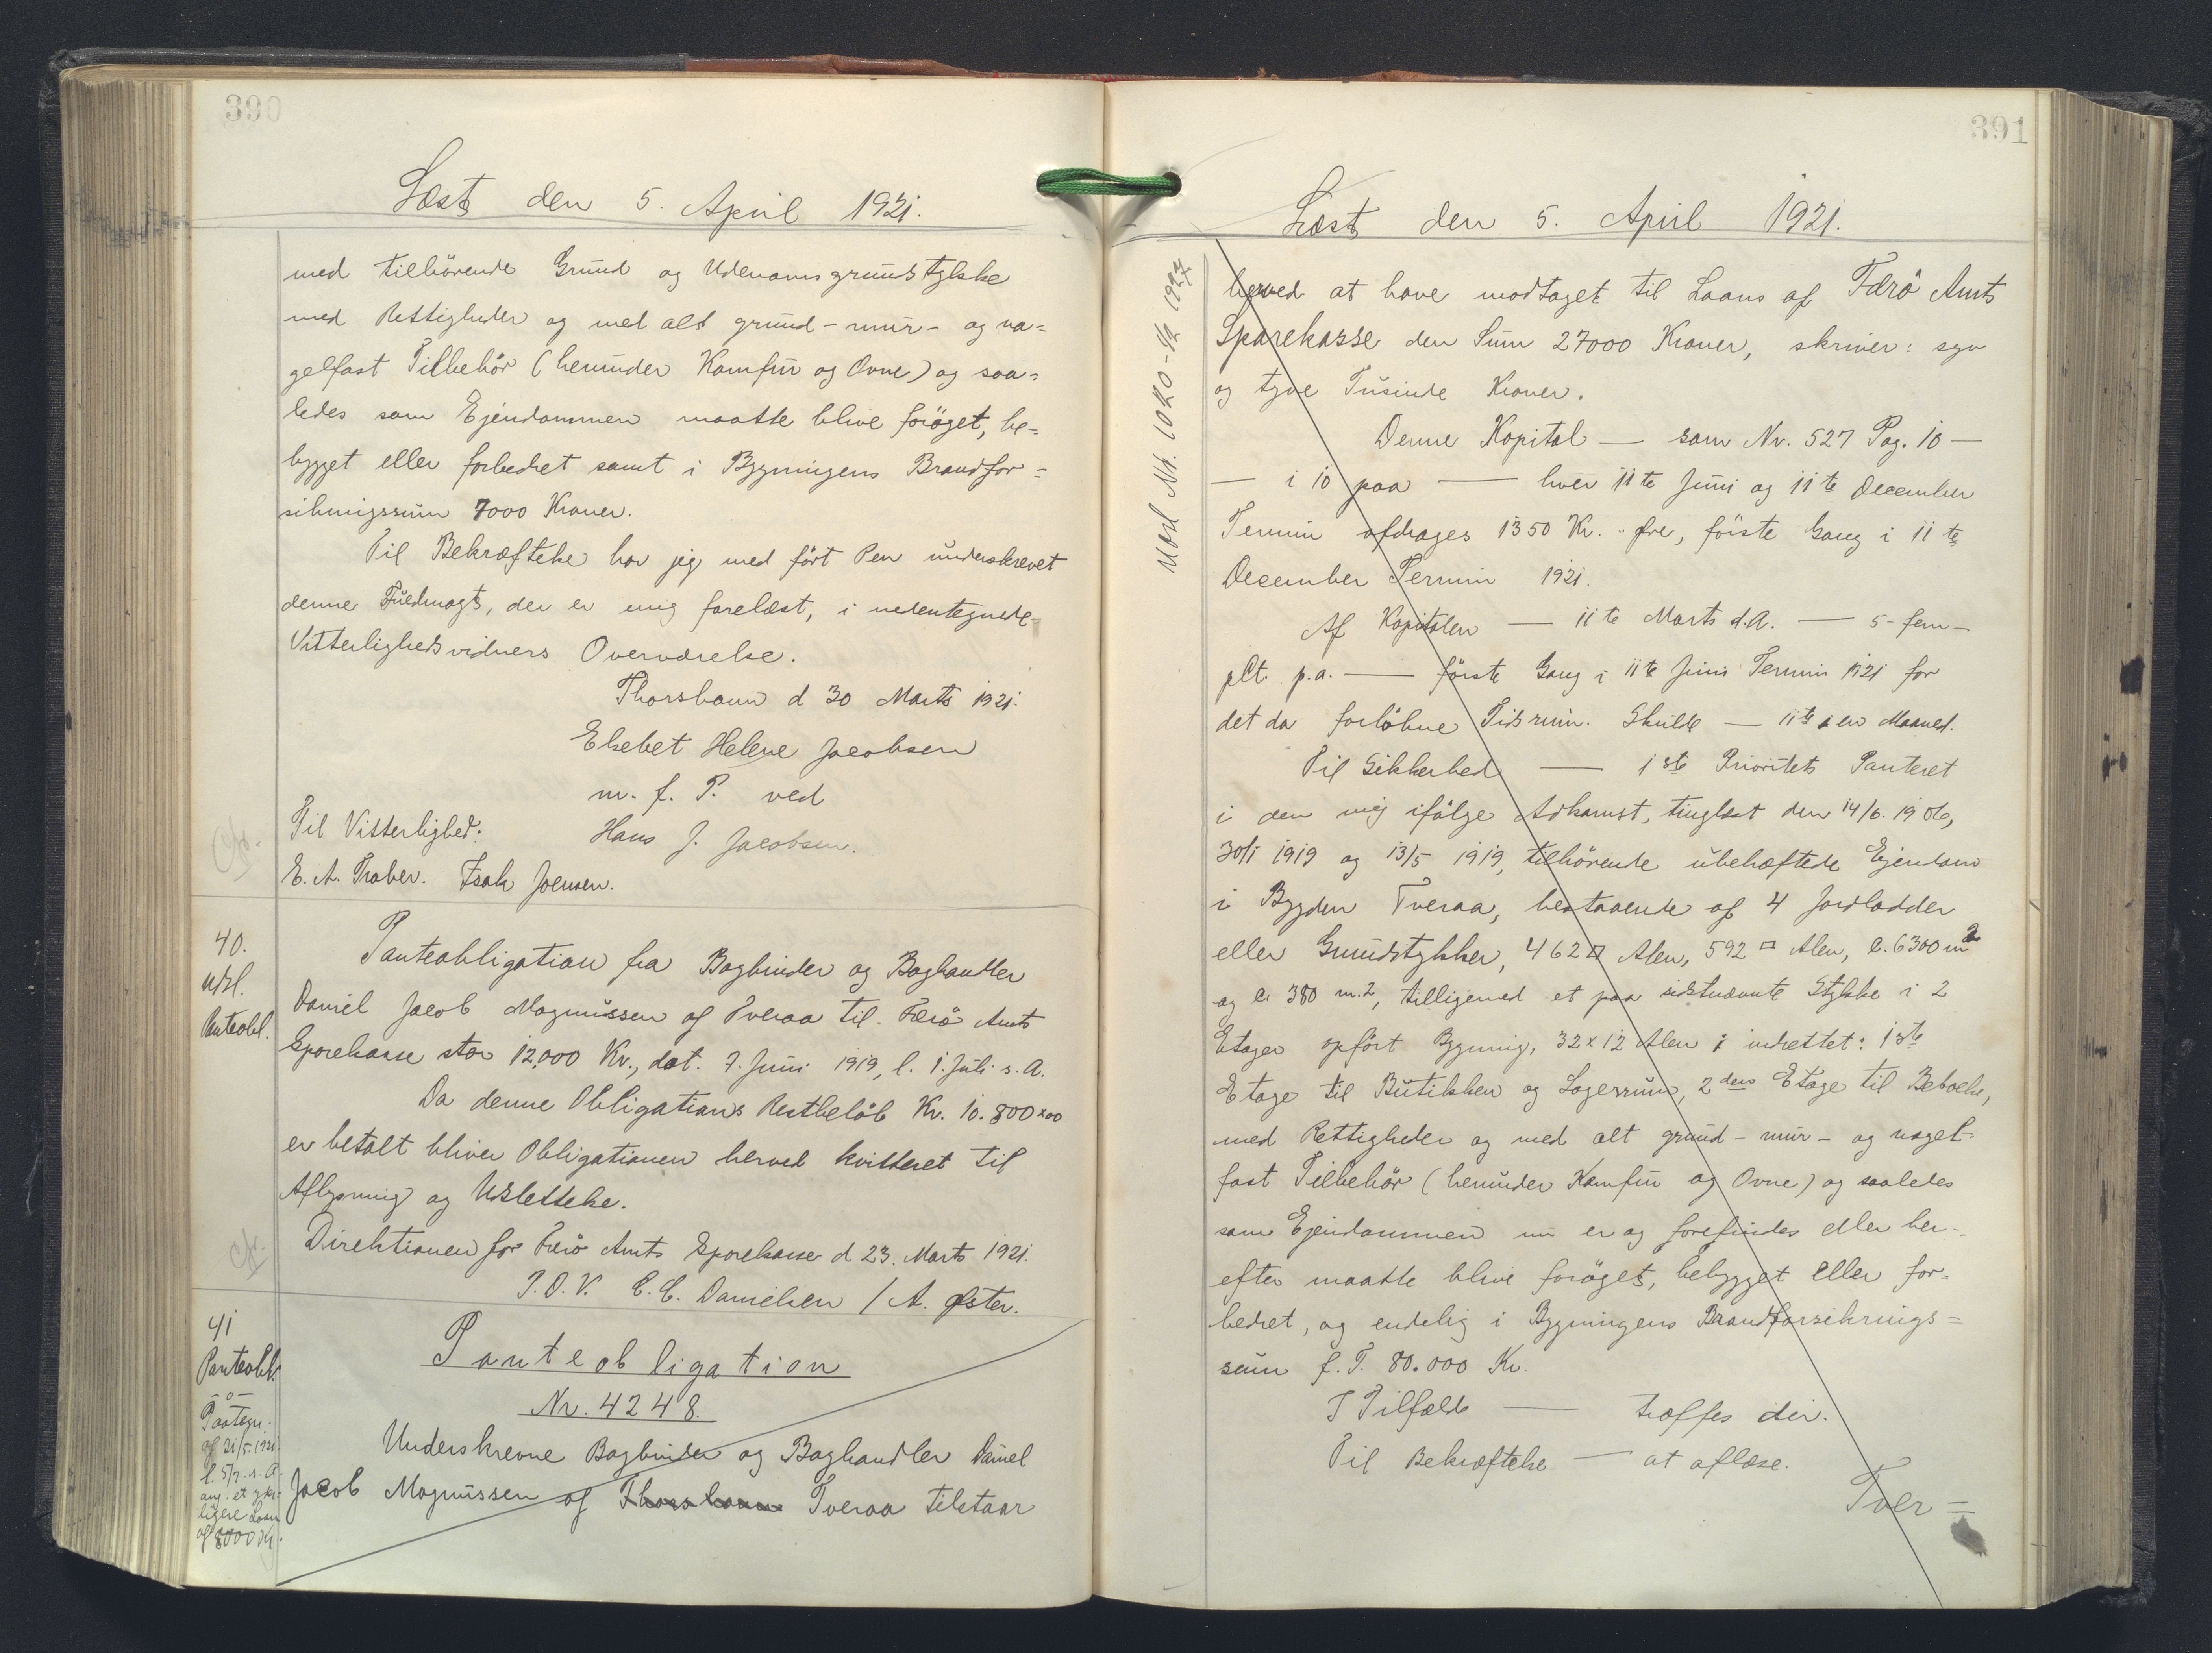 390
Læst den 5. April 1921.
med tilhörende Grund og Udenomsgrundstykke
med Rettigheder og med alt grund- mur- og na=
gelfast Tilbehör (herunder Komfur og Ovne) og saa=
ledes som Ejendommen maatte blive foröget, be=
bygget eller forbedret samt i Bygningens Brandfor=
sikringssum 7000 Kroner.
Til Bekræftelse har jeg med fört Pen underskrevet
denne Fuldmagt, der er mig forelæst, i nedentegnede
Vitterlighedsvidners Overværelse.
Thorshavn d 30 Marts 1921.
Elsebet Helene Jacobsen
m. f. P. ved
Til Vitterlighed: Hans J. Jacobsen.
E. A. Isak Joensen.
40.
Udsl.
Panteobl.
Panteobligation fra Bogbinder og Boghandler
Daniel Jacob Magnussen af Tveraa til Færö Amts
Sparekasse stor 12,000 Kr., dat. 7. Juni 1919, l. 1. Juli s. A.
Da denne Obligations Restbelöb Kr. 10.800 x 00
er betalt bliver Obligationen herved kvitteret til
Aflysning og Udslettelse.
Direktionen for Færö Amts Sparekasse d 23. Marts 1921.
P.D.V. C.C. Danielsen / A. Øster.
41
Panteobl.
-o-
Paategn.
af 21/5. 1921
l. 5/7. s. A.
ang. et yder-
ligere Laan
af 8000 Kr.
Panteobligation
Nr. 4248.
Underskrevne Bogbinder og Boghandler Daniel
Jacob Magnussen af Thorshavn Tveraa tilstaar
391
Læst den 5. April 1921.
herved at have modtaget til Laans af Færö Amts
Sparekasse den Sum 27000 Kroner, skriver: syv
og tyve Tusinde Kroner.
Denne Kapital — som Nr. 527 Pag. 10 —
— i 10 paa — hver 11te Juni og 11te December
Termin afdrages 1350 Kr. .. Øre, förste Gang i 11te
December Termin 1921.
Af Kapitalen — 11te Marts d.A. — 5 - fem -
pCt. p.a. — förste Gang i 11te Juni Termin 1921 for
det da forlöbne Tidsrum. Skulde — 11te i en Maaned.
Til Sikkerhed — 1ste Prioritets Panteret
i den mig ifölge Adkomst, tinglæst den 14/6. 1906,
30/1 1919 og 13/5 1919, tilhörende ubehæftede Ejendom
i Bygden Tveraa, bestaaende af 4 Jordlodder
eller Grundstykker, 462 □ Alen, 592 □ Alen, c. 6300 m2
og c. 380 m.2, tilligemed et paa sidstnævnte Stykke i 2
Etager opfört Bygning, 32 x 12 Alen indrettet: 1ste
Etage til Butikker og Lagerrum, 2den Etage til Beboelse,
med Rettigheder og med alt grund- mur- og nagel-
fast Tilbehör (herunder Komfur og Ovne) og saaledes
som Ejendommen nu er og forefindes eller her-
efter maatte blive foröget, bebygget eller for=
bedret, og endelig i Bygningens Brandforsikrings=
sum f. T. 80.000 Kr.
I Tilfælde — træffes der.
Til Bekræftelse — at aflæse.
Tver=